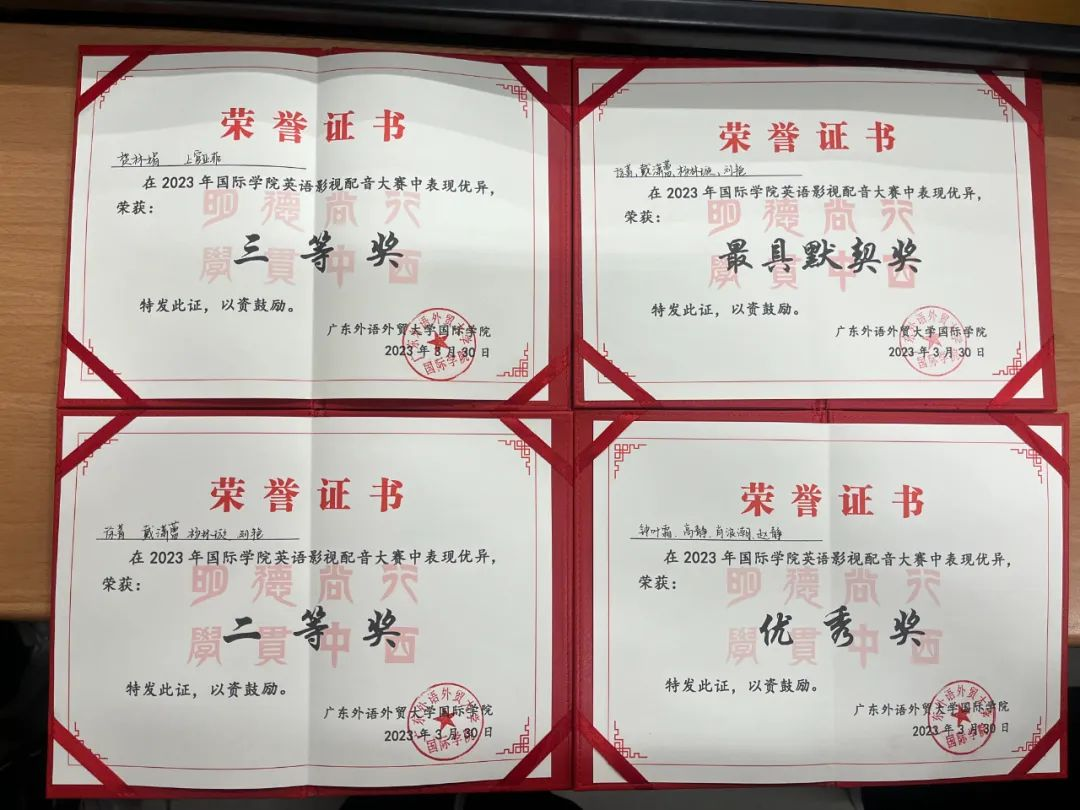 荣誉证书
在2023年国际学院英语影视配音大赛中表现优异，
荣获：
明德尚行
三等奖
學貫中西
特发此证，以资鼓励。
广东外语外贸大学国际学院
2023年3月30日
广东外语外贸大学
国际学院
荣誉证书
戴潇蕾、杨林璇、刘艳
在2023年国际学院英语影视配音大赛中表现优异，
荣获：
明德尚行
最具默契奖
學貫中西
特发此证，以资鼓励。
广东外语外贸大学国际学院
2023年3月30日
广东外语外贸大学
国际学院
荣誉证书
戴潇蕾 杨林璇 刘艳
在2023年国际学院英语影视配音大赛中表现优异，
荣获：
明德尚行
二等奖
學貫中西
特发此证，以资鼓励。
广东外语外贸大学国际学院
2023年3月30日
广东外语外贸大学
国际学院
荣誉证书
钟叶霜、高静、肖浪潮、赵静
在2023年国际学院英语影视配音大赛中表现优异，
荣获：
明德尚行
优秀奖
學貫中西
特发此证，以资鼓励。
广东外语外贸大学国际学院
2023年3月30日
广东外语外贸大学
国际学院